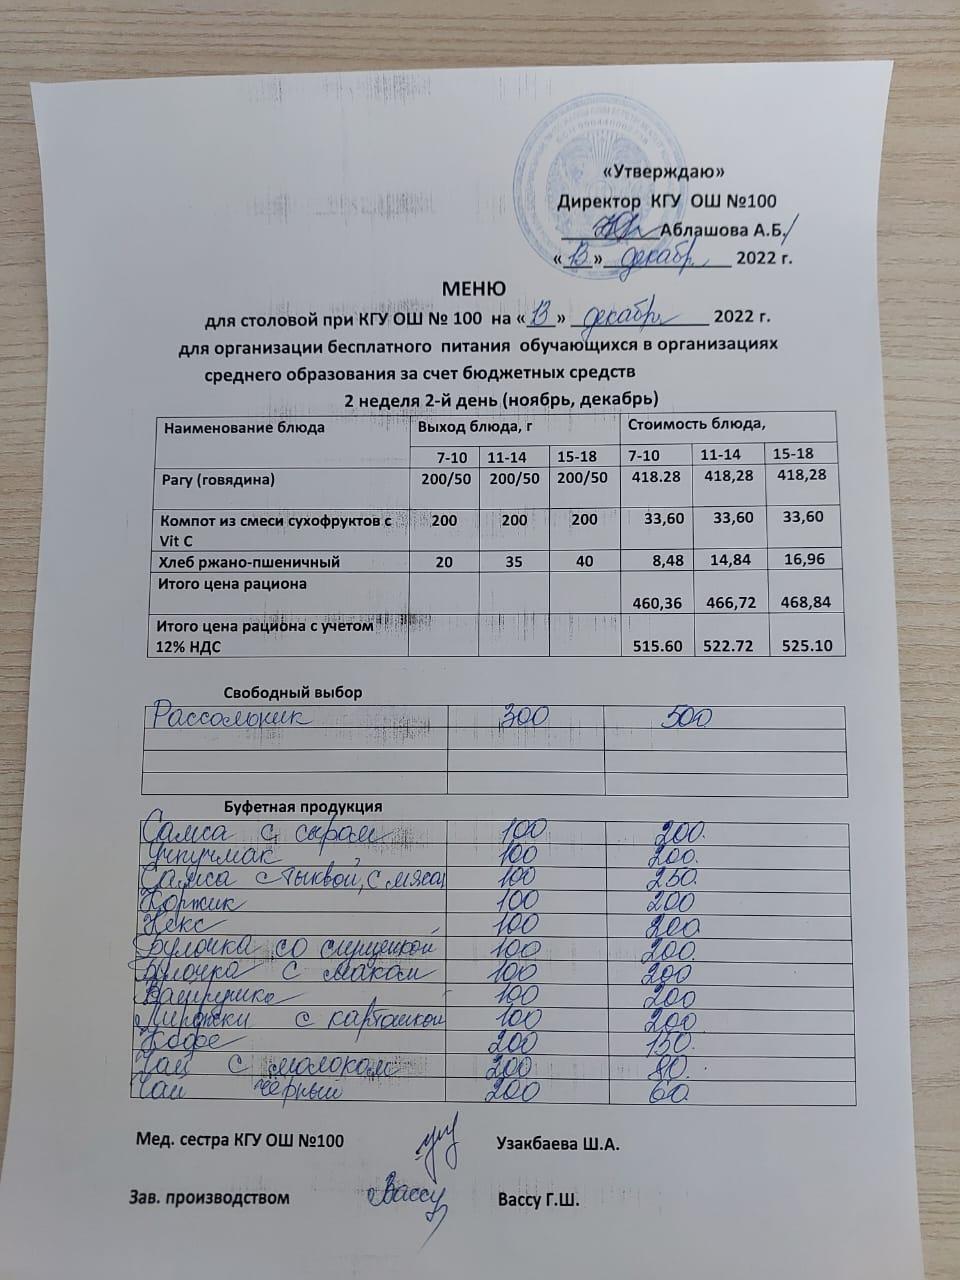 «Утверждаю»
Директор КГУ ОШ №100
Аблашова А.Б.
«13» декабр 2022 г.
МЕНЮ
для столовой при КГУ ОШ № 100 на «13» декабрь 2022 г.
для организации бесплатного питания обучающихся в организациях
среднего образования за счет бюджетных средств
2 неделя 2-й день (ноябрь, декабрь)
Наименование блюда Выход блюда, г Стоимость блюда,
7-10 11-14 15-18 7-10 11-14 15-18
Рагу (говядина) 200/50 200/50 200/50 418.28 418,28 418,28
Компот из смеси сухофруктов с 200 200 200 33,60 33,60 33,60
Vit C
Хлеб ржано-пшеничный 20 35 40 8,48 14,84 16,96
Итого цена рациона
460,36 466,72 468,84
Итого цена рациона с учетом
12% НДС 515.60 522.72 525.10
Свободный выбор
Рассольник 300 500
Буфетная продукция
Самса с сыром 100 200.
Учпучмак 100 200.
Самса с тыквой, с мясом 100 250.
Коржик 100 200
Кекс 100 200
Булочка со сгущенкой 100 200.
Булочка с маком 100 200
Ватрушка 100 200
Пирожки с картошкой 100 200
Кофе 200 150.
Чай с молоком 200 80.
Чай чёрный 200 60.
Мед. сестра КГУ ОШ №100 Узакбаева Ш.А.
Зав. производством Вассу Вассу Г.Ш.